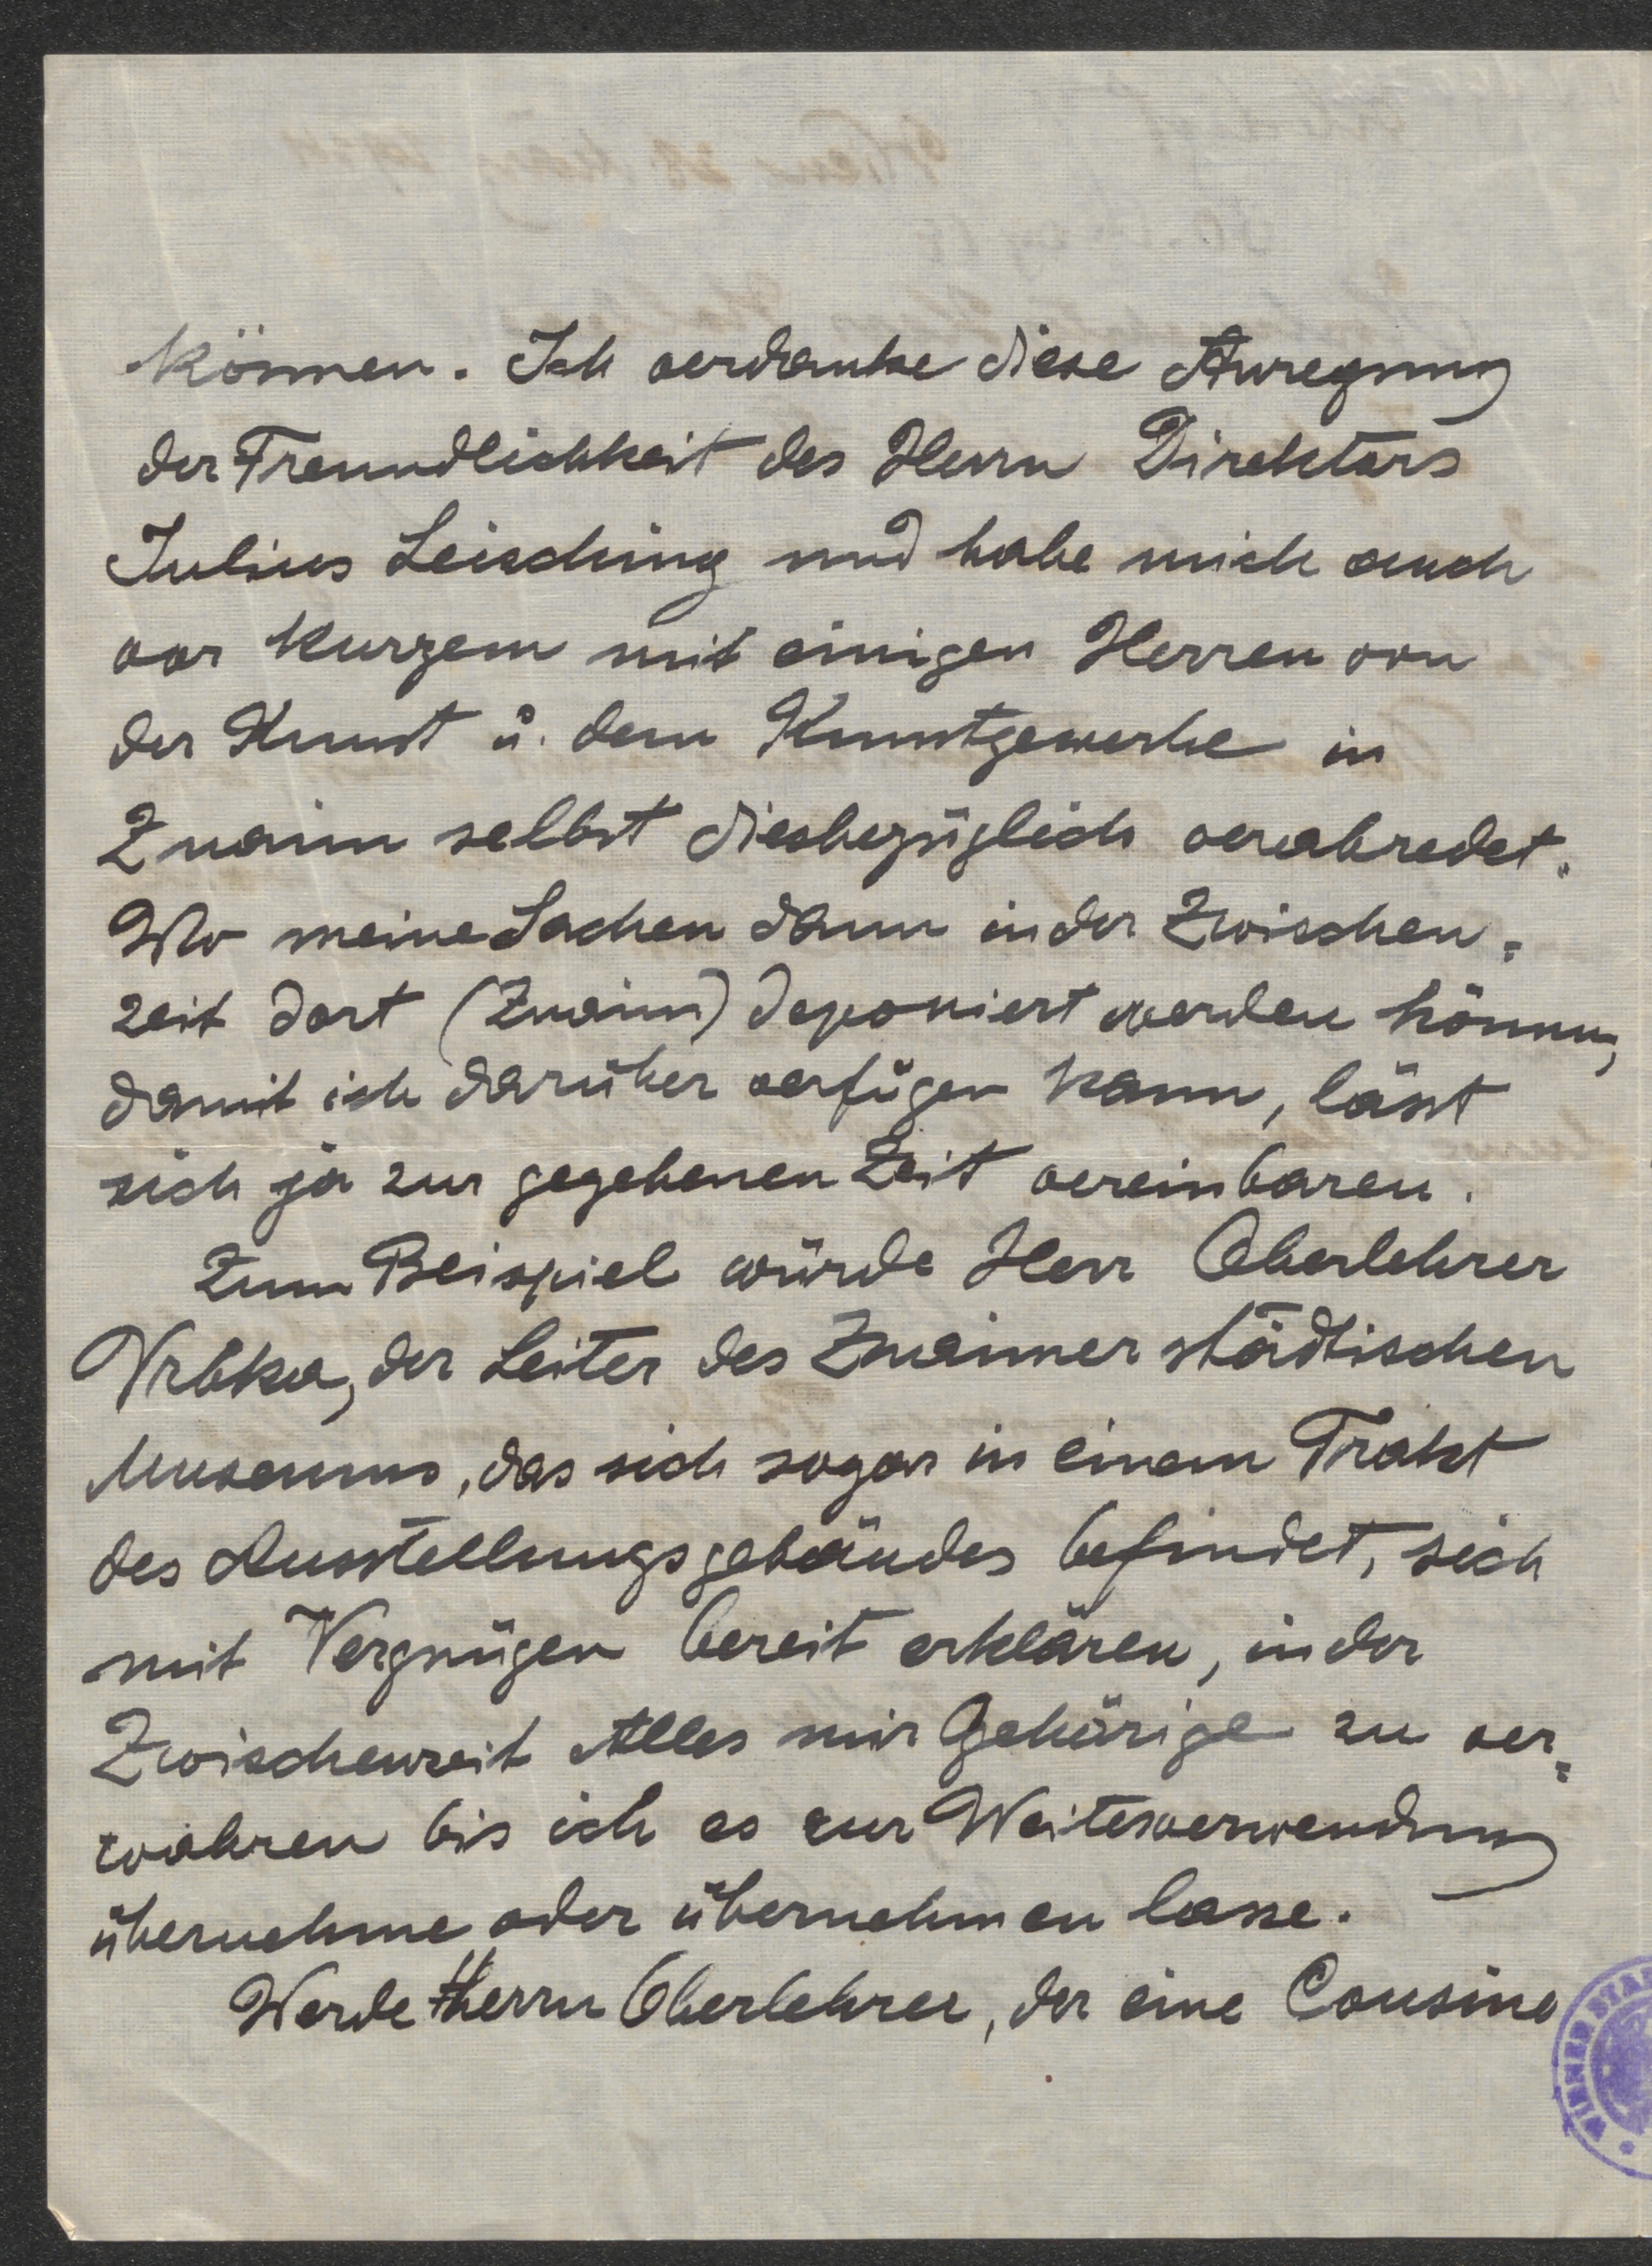 können. Ich verdanke diese Anregung
der Freundlichkeit des Herrn Direktors
Julius Leisching und habe mich auch
vor Kurzem mit einigen Herren von
der Kunst u. dem Kunstgewerbe in
Znaim selbst diesbezüglich verabredet.
Wo meine Sachen dann in der Zwischen=
zeit dort (Znaim) deponiert werden können,
damit ich darüber verfügen kann, lässt
sich ja zur gegebenen Zeit vereinbaren.
Zum Beispiel würde Herr Oberlehrer
Vrbka, der Leiter des Znaimer städtischen
Museums, das sich sogar in einem Trakt
des Ausstellungsgebäudes befindet, sich
mit Vergnügen bereit erklären, in der
Zwischenzeit Alles mir Gehörige zu ver=
wahren bis ich es zur Weiterverwendung
übernehme oder übernehmen lasse.
Werde Herrn Oberlehrer, der eine Cousine
WIENER